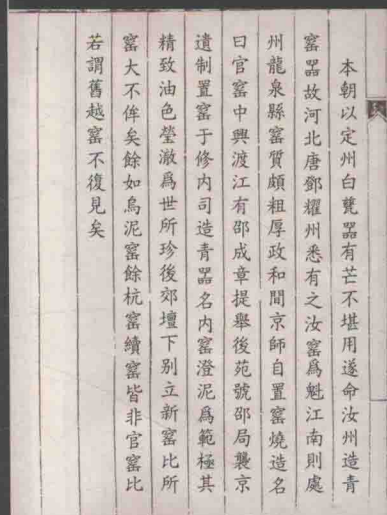 本朝以定州白甆器有芒不堪用遂命汝州造青
窰器故河北唐鄧耀州悉有之汝窰爲魁江南則處
州龍泉縣窰質頗粗厚政和間京師自置窰燒造名
曰官窰中興渡江有邵成章提舉後苑號邵局襲京
遺制置窰于修内司造青器名内窰澄泥爲範極其
精致油色瑩澈爲世所珍後郊壇下别立新窰比所
窰大不侔矣餘如烏泥窰餘杭窰續窰皆非官窰比
若謂舊越窰不復見矣